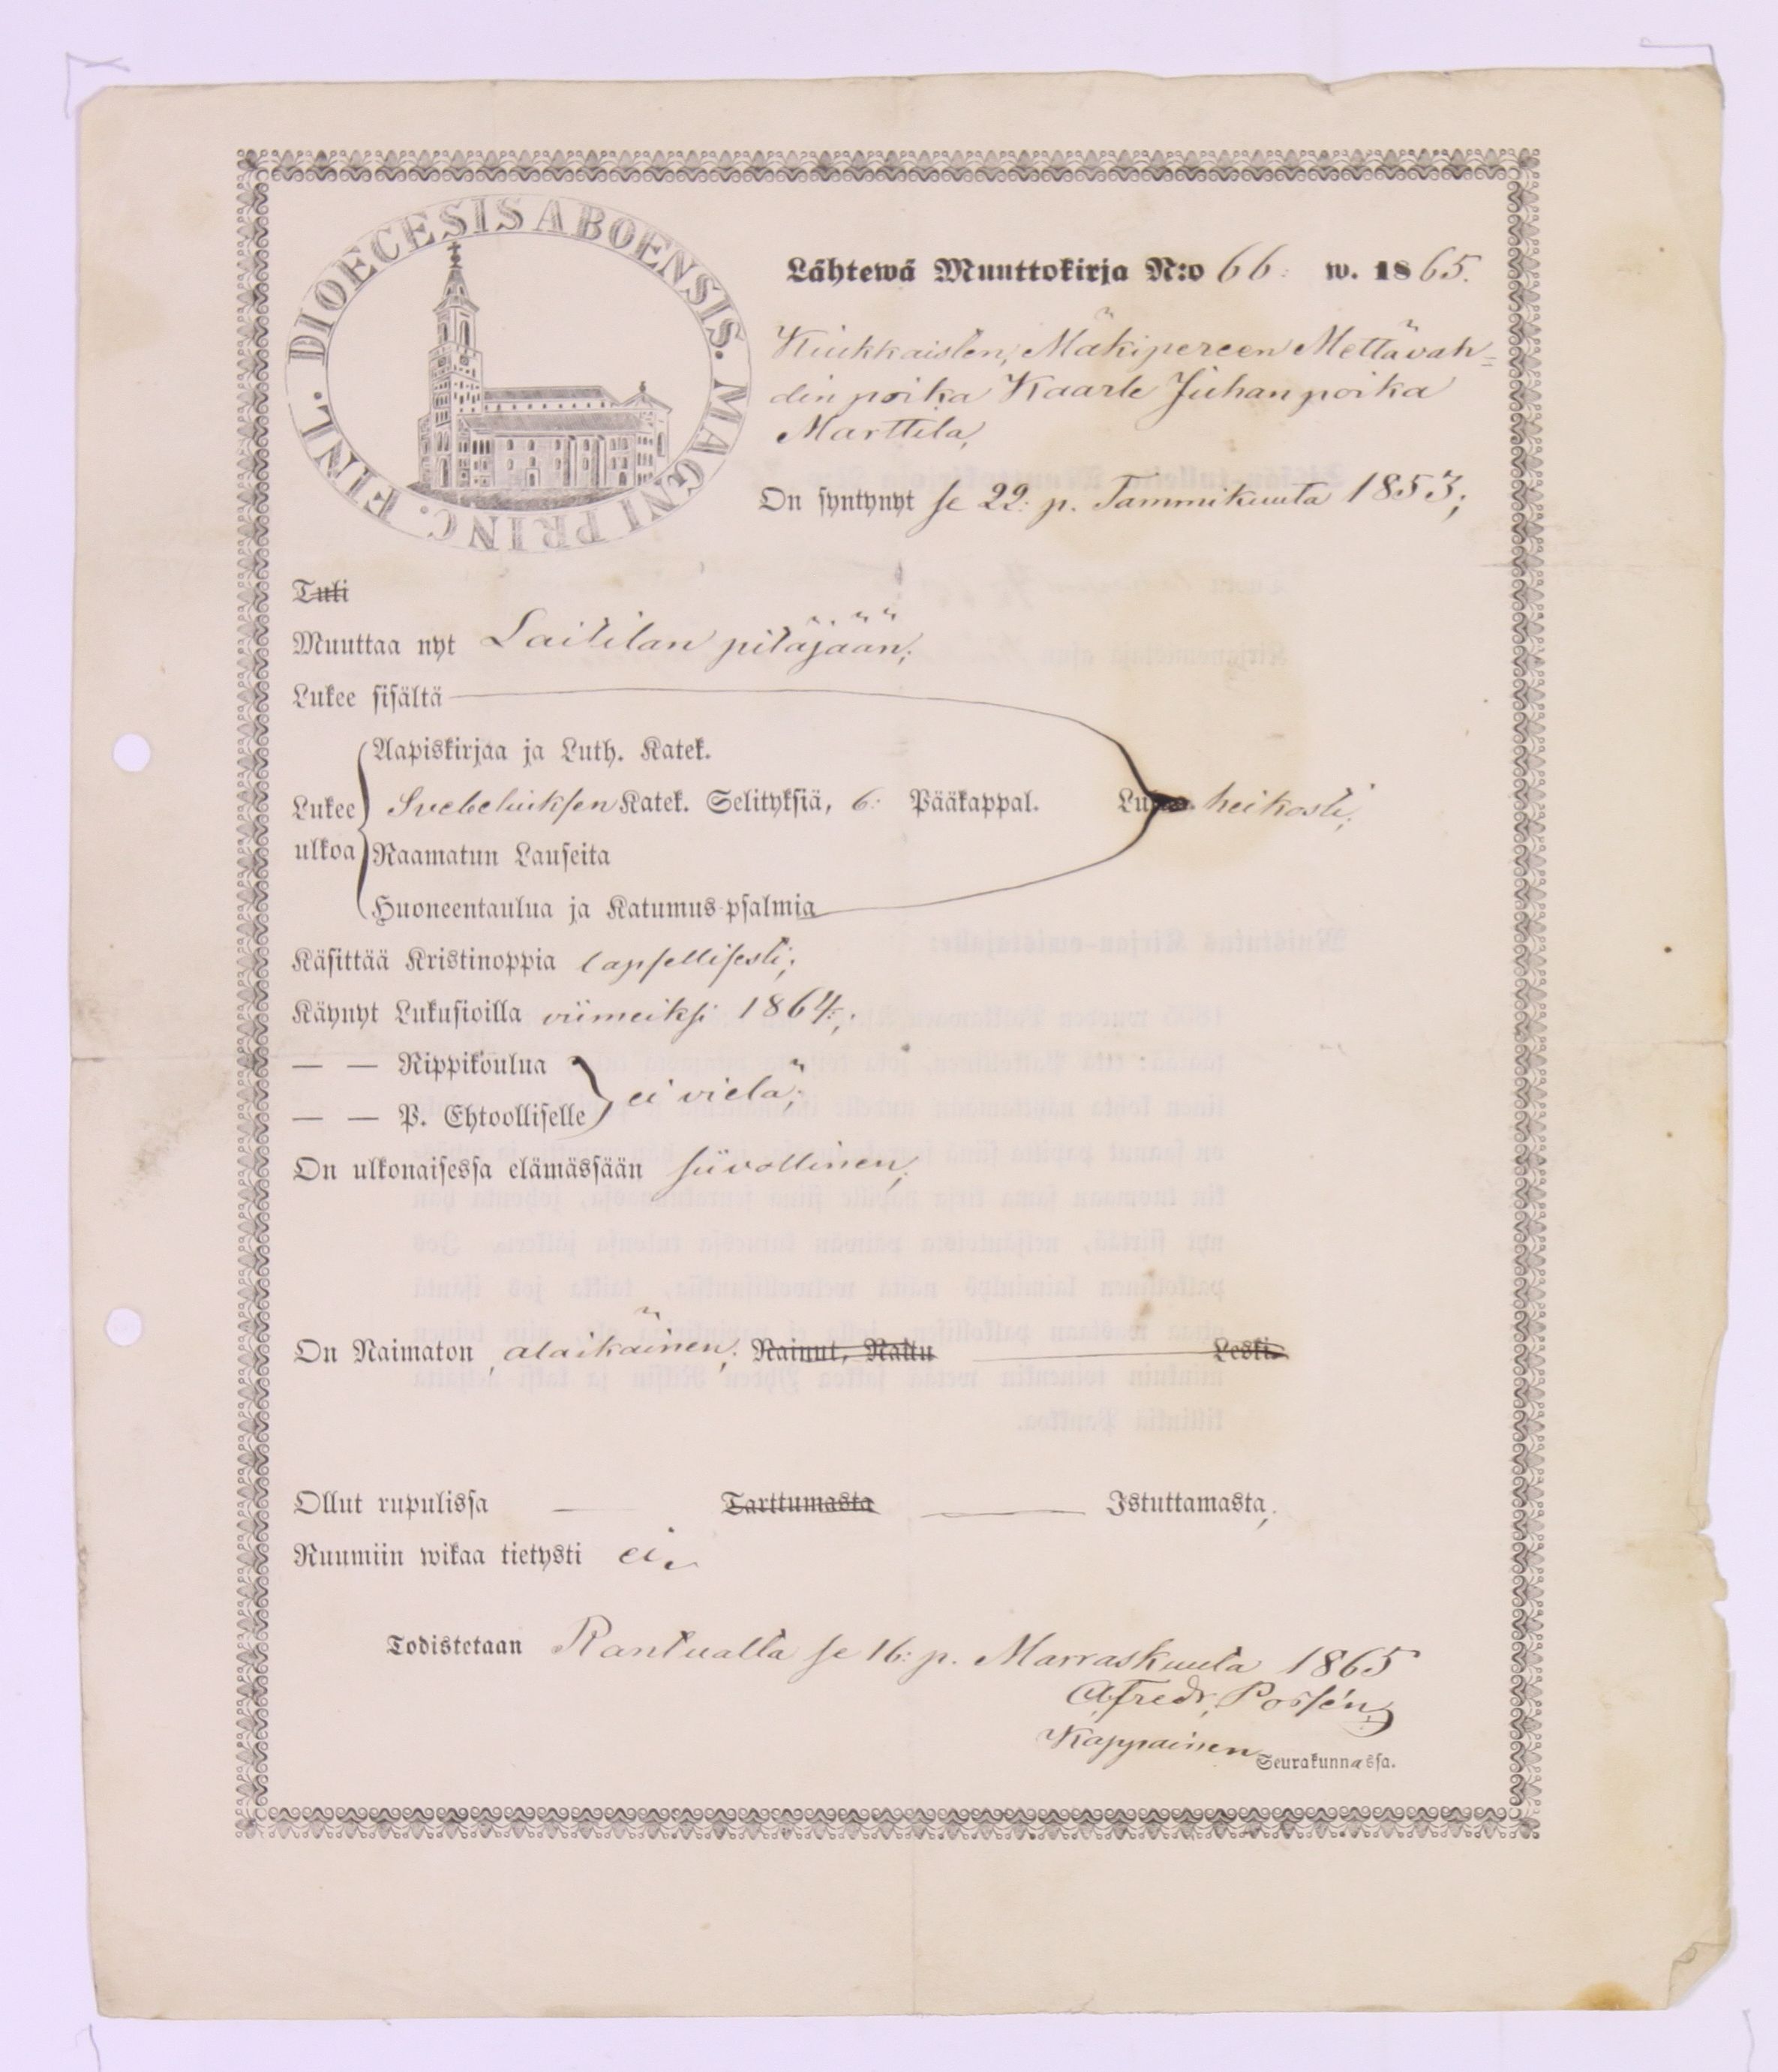 DIOECESIS ABOENSIS. MAGNI PRINC. FINL.
Lähtewä Muuttokirja N:o 66: w. 1865.
Kiukkaisten, Mäkipereen Mettävah=
din poika Kaarle Juhanpoika
Marttila,
On syntynyt se 22: p. Tammikuuta 1853;
Tuli
Muuttaa nyt Laitilan pitäjään;
Lukee sisältä
Aapiskirjaa ja Luth. Katek.
Lukee Svebeliuksen Katek. Selityksiä, 6: Pääkappal. heikosti;
ulkoa Raamatun Lauseita
Huoneentaulua ja Katumus-psalmia
Käsittää Kristinoppia lapsellisesti;
Käynyt Lukusioilla viimeiksi 1864;
— — Rippikoulua
ei vielä;
— — P. Ehtoolliselle
On ulkonaisessa elämässään siivollinen;
On Naimaton, alaikäinen; Nainut, Naitu Leski.
Ollut rupulissa — Tarttumasta — Istuttamasta,
Ruumiin wikaa tietysti ei.
Todistetaan Kantualla se 16: p. Marraskuuta 1865
Fredr. Possén
Kappalainen Seurakunnassa.